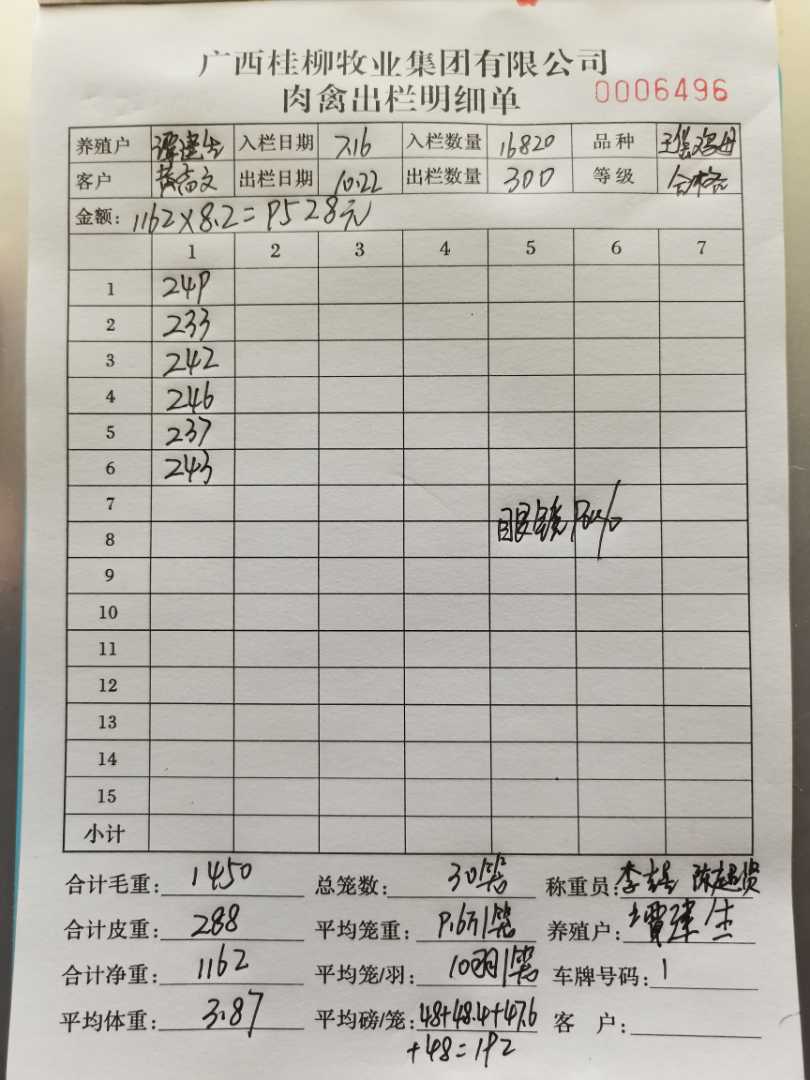 广西桂柳牧业集团有限公司
肉禽出栏明细单 0006496
养殖户 谭建生 入栏日期 7.16 入栏数量 16820 品种
客户 出栏日期 10.22 出栏数量 300 等级 合格
金额: 1162×8.2=9528元
1 2 3 4 5 6 7
1 249
2 233
3 242
4 246
5 237
6 243
7
眼镜90%
8
9
10
11
12
13
14
15
小计
合计毛重: 1450 总笼数: 30笼 称重员: 陈超贤
合计皮重: 288 平均笼重: 9.6斤/笼 养殖户: 谭建生
合计净重: 1162 平均笼/羽: 10羽/笼 车牌号码: 1
平均体重: 3.87 平均磅/笼: 48+48.4+47.6 客 户:
+48=192